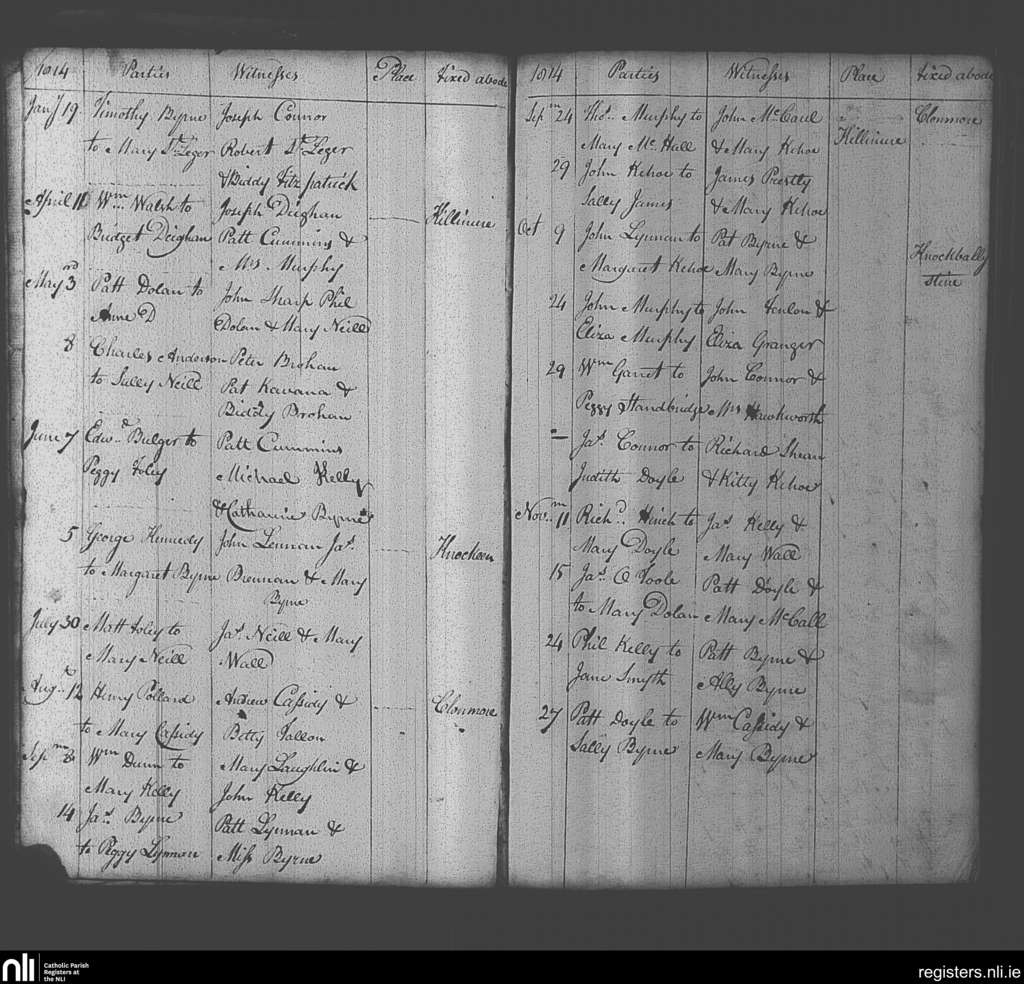 1814 Parties Witnesses Place fixed abode
Jany 19 Timothy Byrne Joseph Connor
to Mary St. Leger Robert St. Leger
& Biddy Fitzpatrick
April 11 Wm. Walsh to Joseph Deighan Killinure
Bridget Deighan Patt Cummins &
Mrs. Murphy
May 3rd Patt Dolan to John Sharp Phil
Anne D Dolan & Mary Neill
8 Charles Anderson Peter Brohan
to Sally Neill Pat Kavana &
Biddy Brohan
June 7 Edwd. Bulger to Patt Cummins
Peggy Foley Michael Kelly
& Catharine Byrne
5 George Kennedy John Lennan Jas. Knockeen
to Margaret Byrne Brennan & Mary
Byrne
July 30 Matt Foley to Jas. Neill & Mary
Mary Neill Wall
Augt. 12 Henry Pollard Andrew Cassidy & Clonmore
to Mary Cassidy Betty Fallon
Sepm 8 Wm Dunn to Mary Laughlin &
Mary Kelly John Kelly
14 Jas. Byrne Patt Lynnan &
to Peggy Lynnan Miss Byrne
1814 Parties Witnesses Place fixed abode
Sepm 24 Thos. Murphy to John McCaul Killinure Clonmore
Mary Mc. Hall & Mary Kehoe
29 John Kehoe to James Prestly
Sally James & Mary Kehoe
Oct 9 John Lynnan to Pat Byrne & Knockbally
Margaret Kehoe Mary Byrne stine
24 John Murphy to John Fenlon &
Eliza Murphy Eliza Granger
29 Wm Garret to John Connor &
Peggy Standbridge Mrs Hawkworth
— Jas. Connor to Richard Shean
Judith Doyle & Kitty Kehoe
Novm. 11 Richd. Hinch to Jas Kelly &
Mary Doyle Mary Wall
15 Jas. O Toole Patt Doyle &
to Mary Dolan Mary McCall
24 Phil Kelly to Patt Byrne &
Jane Smyth Ally Byrne
27 Patt Doyle to Wm Cassidy &
Sally Byrne Mary Byrne
nli Catholic Parish
Registers at
the NLI
registers.nli.ie